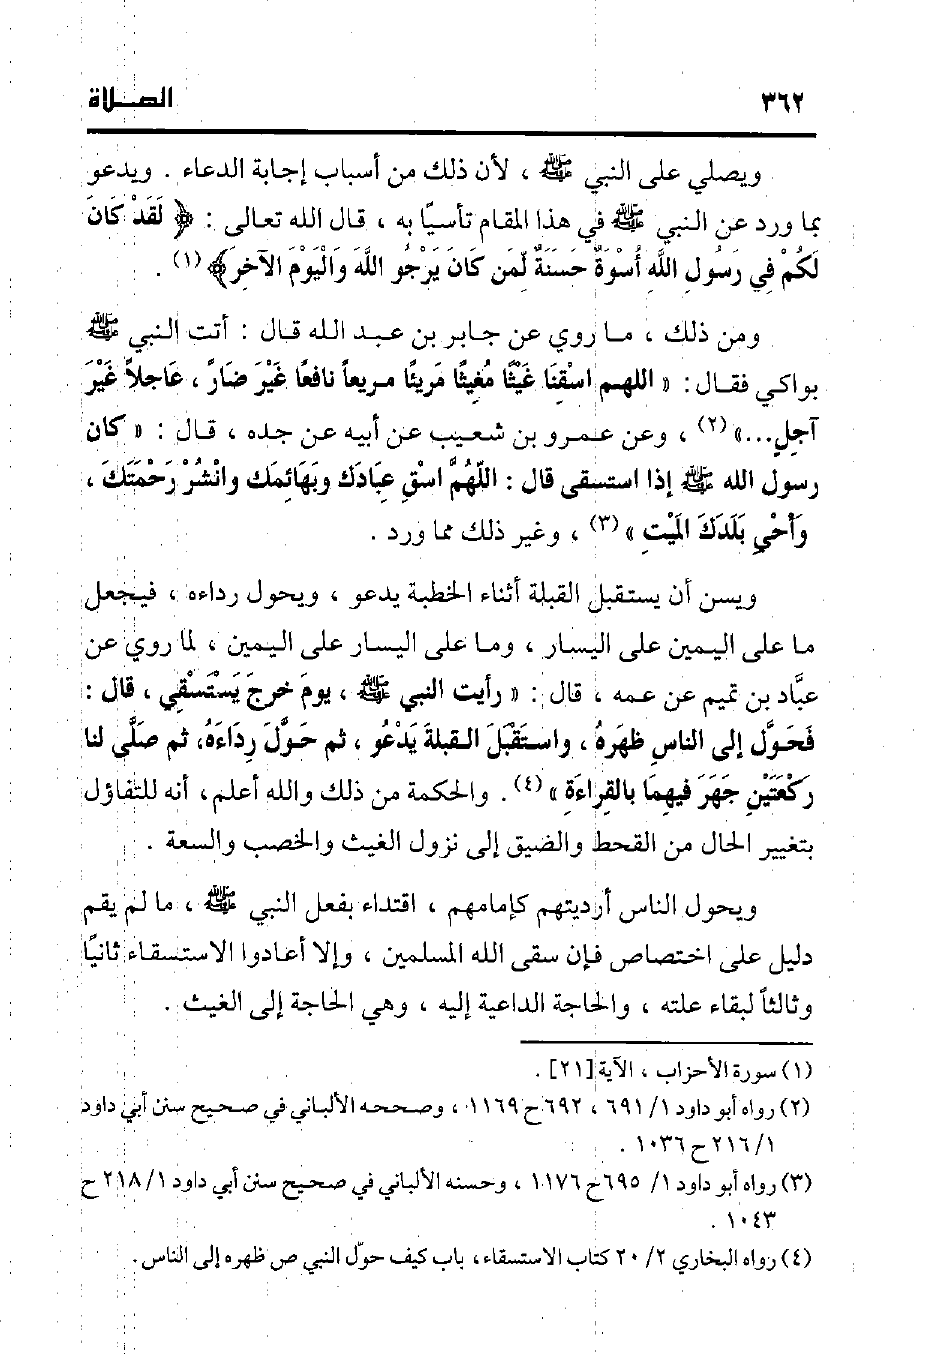 ٣٦٢
الصلاة
ويصلي على النبي ﷺ ، لأن ذلك من أسباب إجابة الدعاء . ويدعو
بما ورد عن النبي ﷺ في هذا المقام تأسيًا به ، قال الله تعالى : ﴿ لَقَدْ كَانَ
لَكُمْ فِي رَسُولِ اللَّهِ أُسْوَةٌ حَسَنَةٌ لِّمَن كَانَ يَرْجُو اللَّهَ وَالْيَوْمَ الآخِرَ﴾ (١) .
ومن ذلك ، ما روي عن جابر بن عبد الله قال : أتت النبي ﷺ
بواكي فقال : « اللهم اسْقِنَا غَيْثًا مُغيثًا مَريئًا مريعاً نافعًا غَيْرَ ضَارَّ ، عَاجلاً غَيْرَ
آجلٍ...» (٢) ، وعن عمرو بن شعيب عن أبيه عن جده ، قال : « كان
رسول الله ﷺ إذا استسقى قال : اللَّهُمَّ اسْقِ عِبَادَكَ وبَهَائِمَك وانْشُرْ رَحْمَتَكَ ،
وَأَحْيِ بَلَدَكَ المَيْتِ » (٣) ، وغير ذلك مما ورد .
ويسن أن يستقبل القبلة أثناء الخطبة يدعو ، ويحول رداءه ، فيجعل
ما على اليمين على اليسار ، وما على اليسار على اليمين ، لما روي عن
عبَّاد بن تميم عن عمه ، قال : « رأيت النبي ﷺ ، يومَ خرجَ يَسْتَسْقِي ، قال :
فَحَوَّل إلى الناسِ ظهرَهُ ، واستَقْبَلَ القبلةَ يَدْعُو ، ثم حَوَّلَ رِدَاءَهُ، ثم صَلَّى لنا
رَكْعَتَيْنِ جَهَرَ فيهِمَا بالقِراءَةِ » (٤) . والحكمة من ذلك والله أعلم، أنه للتفاؤل
بتغيير الحال من القحط والضيق إلى نزول الغيث والخصب والسعة .
ويحول الناس أرديتهم كإمامهم ، اقتداء بفعل النبي ﷺ ، ما لم يقم
دليل على اختصاص فإن سقى الله المسلمين ، وإلا أعادوا الاستسقاء ثانيًا
وثالثاً لبقاء علته ، والحاجة الداعية إليه ، وهي الحاجة إلى الغيث .
(١) سورة الأحزاب ، الآية [٢١] .
(٢) رواه أبو داود ١/ ٦٩١ ، ٦٩٢ ح ١١٦٩ ، وصححه الألباني في صحيح سنن أبي داود
١/ ٢١٦ ح ١٠٣٦ .
(٣) رواه أبو داود ١/ ٦٩٥ ح ١١٧٦ ، وحسنه الألباني في صحيح سنن أبي داود ١/ ٢١٨ ح
١٠٤٣ .
(٤) رواه البخاري ٢/ ٢٠ كتاب الاستسقاء، باب كيف حوّل النبي ص ظهره إلى الناس.